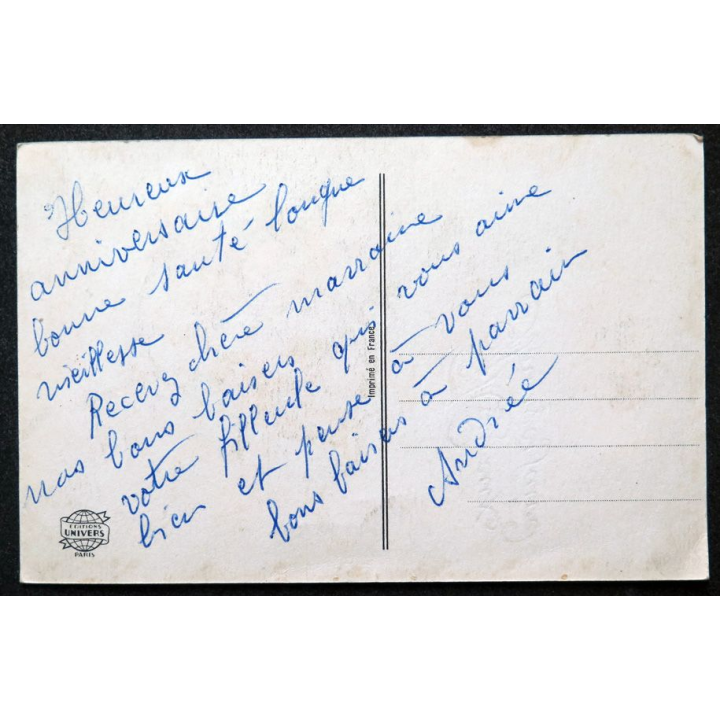 Heureux
anniversaire
bonne santé longue
vieillesse
Recevez chère marraine
nos bons baisers
votre filleule qui vous aime
bien et pense à vous
bons baisers à parrain
Andrée
Imprimé en France
EDITIONS
UNIVERS
PARIS